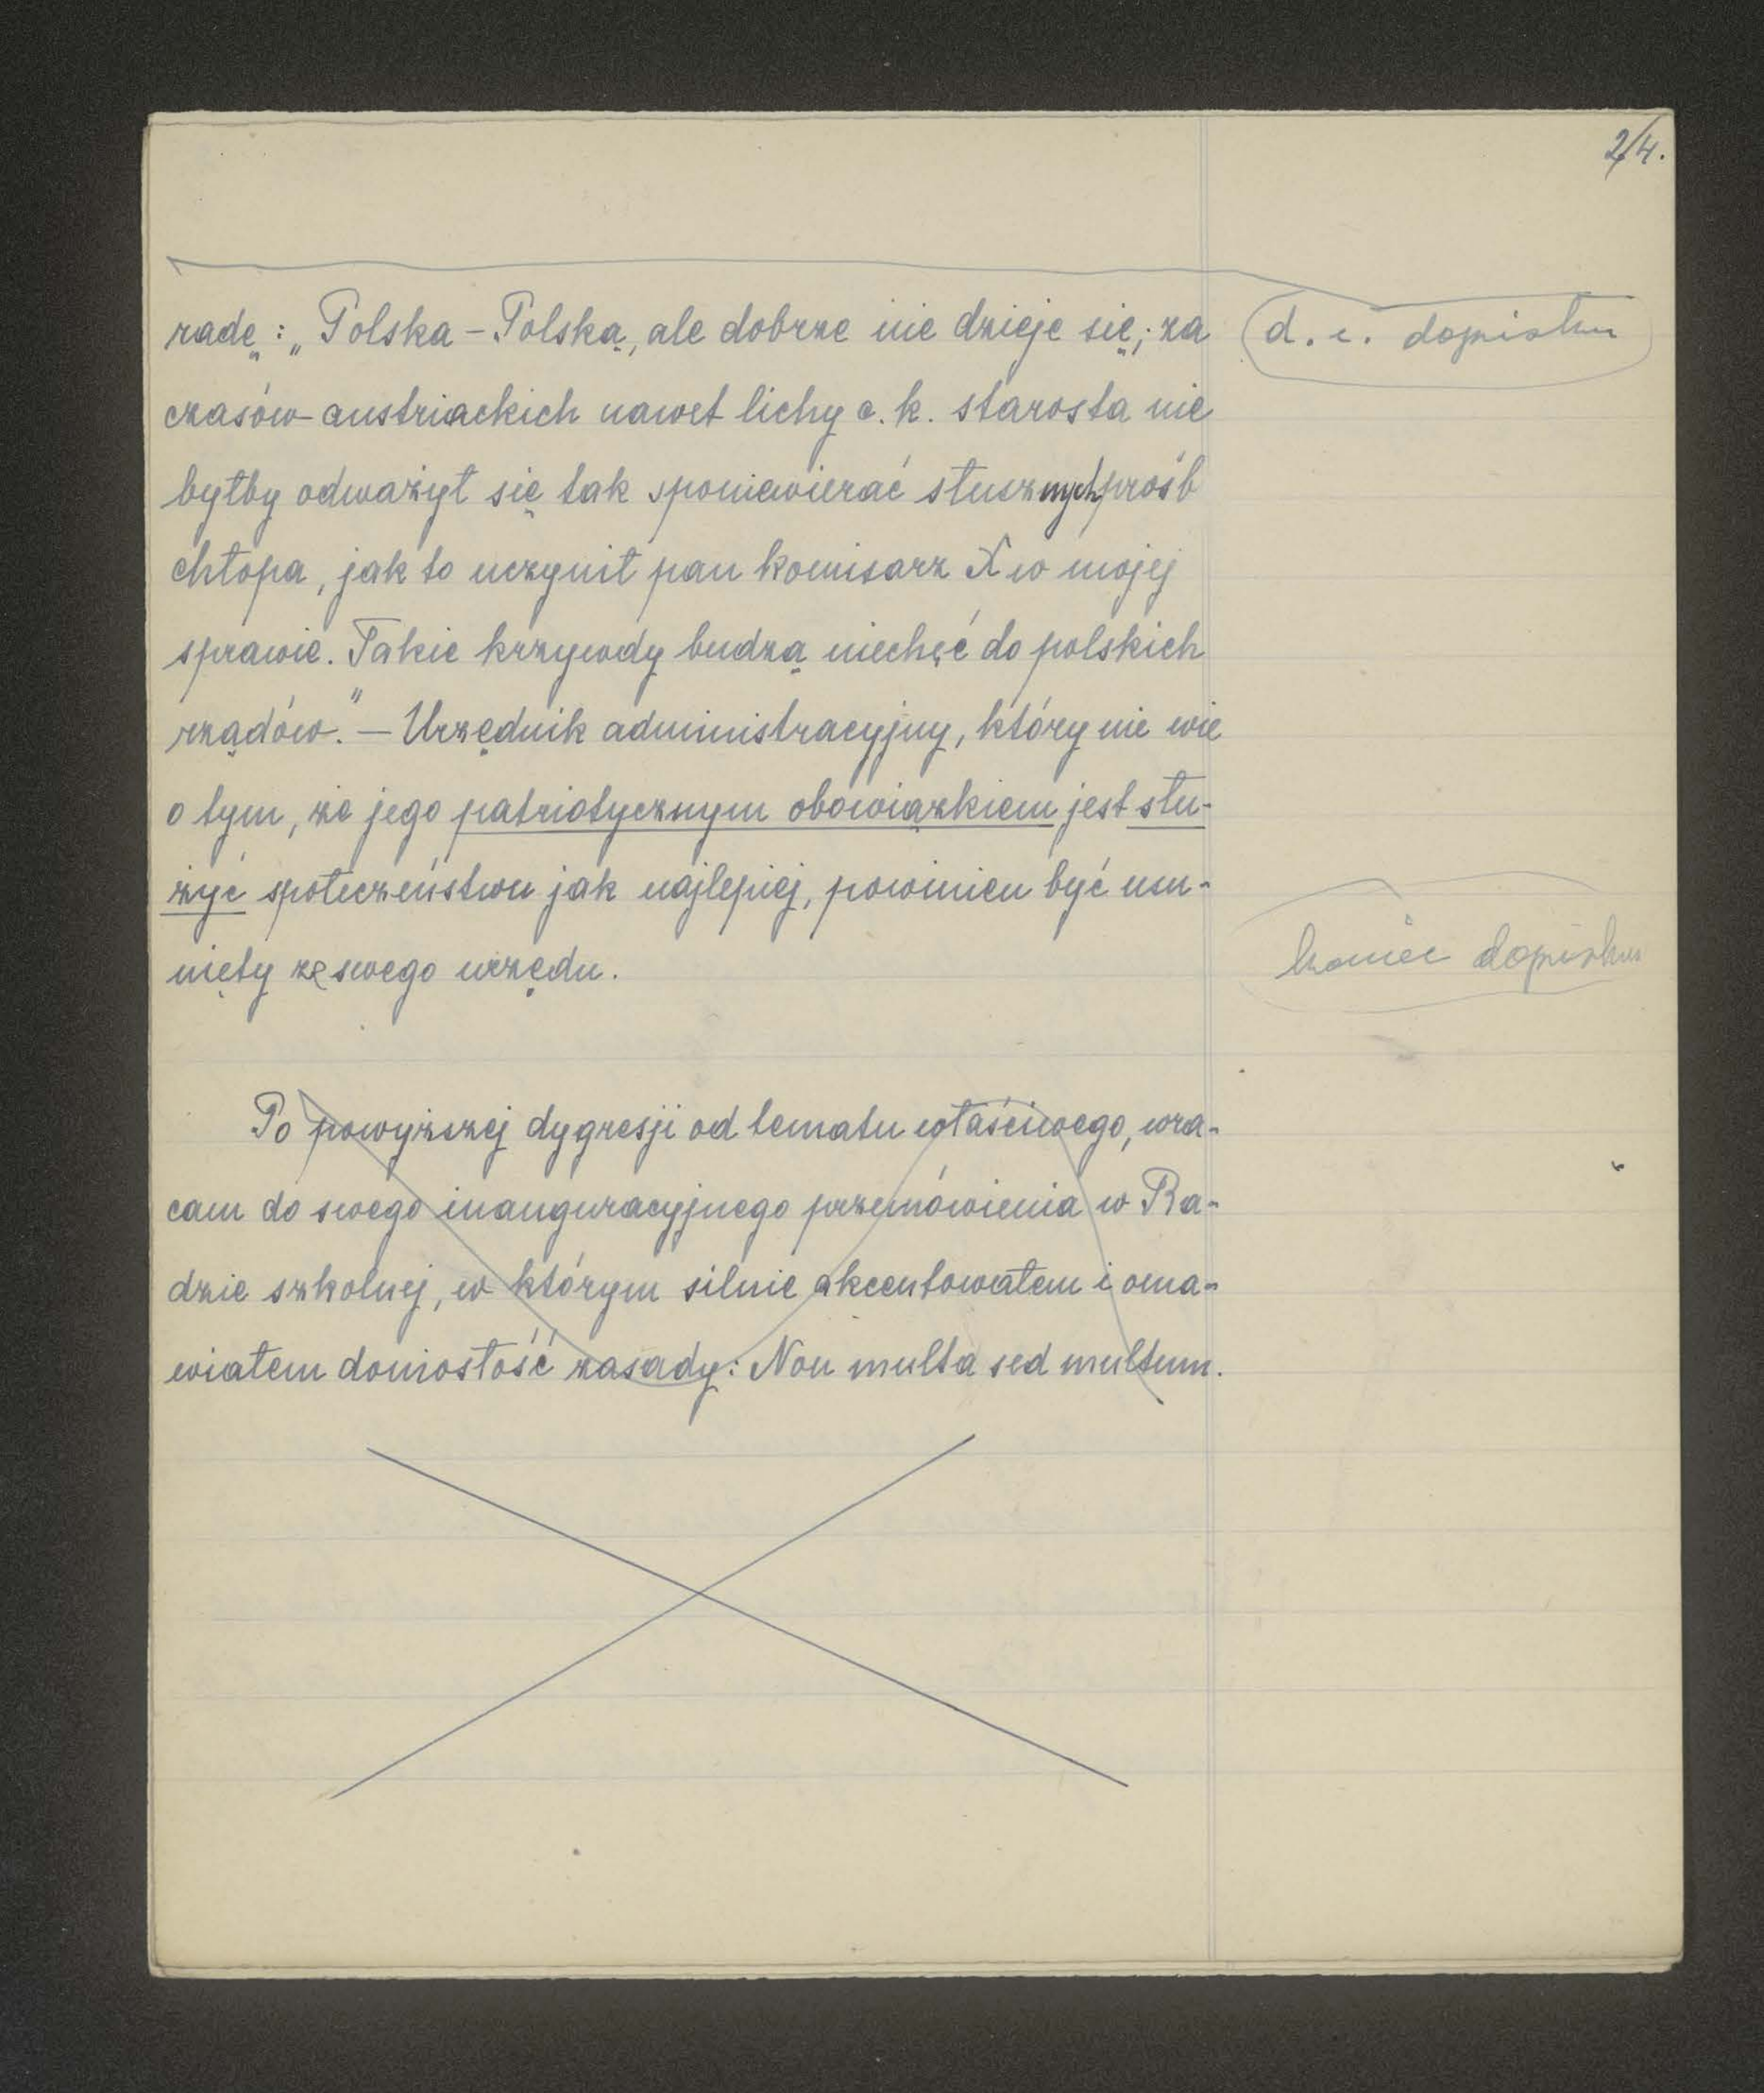 2/4.
radę: „Polska – Polską, ale dobrze nie dzieje się; za
d. c. dopisku
czasów austriackich nawet lichy c. k. starosta nie
byłby odważył się tak sponiewierać słusznych próśb
chłopa, jak to uczynił pan komisarz X w mojej
sprawie. Takie krzywdy budzą niechęć do polskich
rządów." – Urzędnik administracyjny, który nie wie
o tym, że jego patriotycznym obowiązkiem jest słu-
żyć społeczeństwu jak najlepiej, powinien być usu-
nięty ze swego urzędu.
koniec dopisku
Po powyższej dygresji od tematu właściwego, wra-
cam do swego inauguracyjnego przemówienia w Ra-
dzie szkolnej, w którym silnie akcentowałem i oma-
wiałem doniosłość zasady: Non multa sed multum.